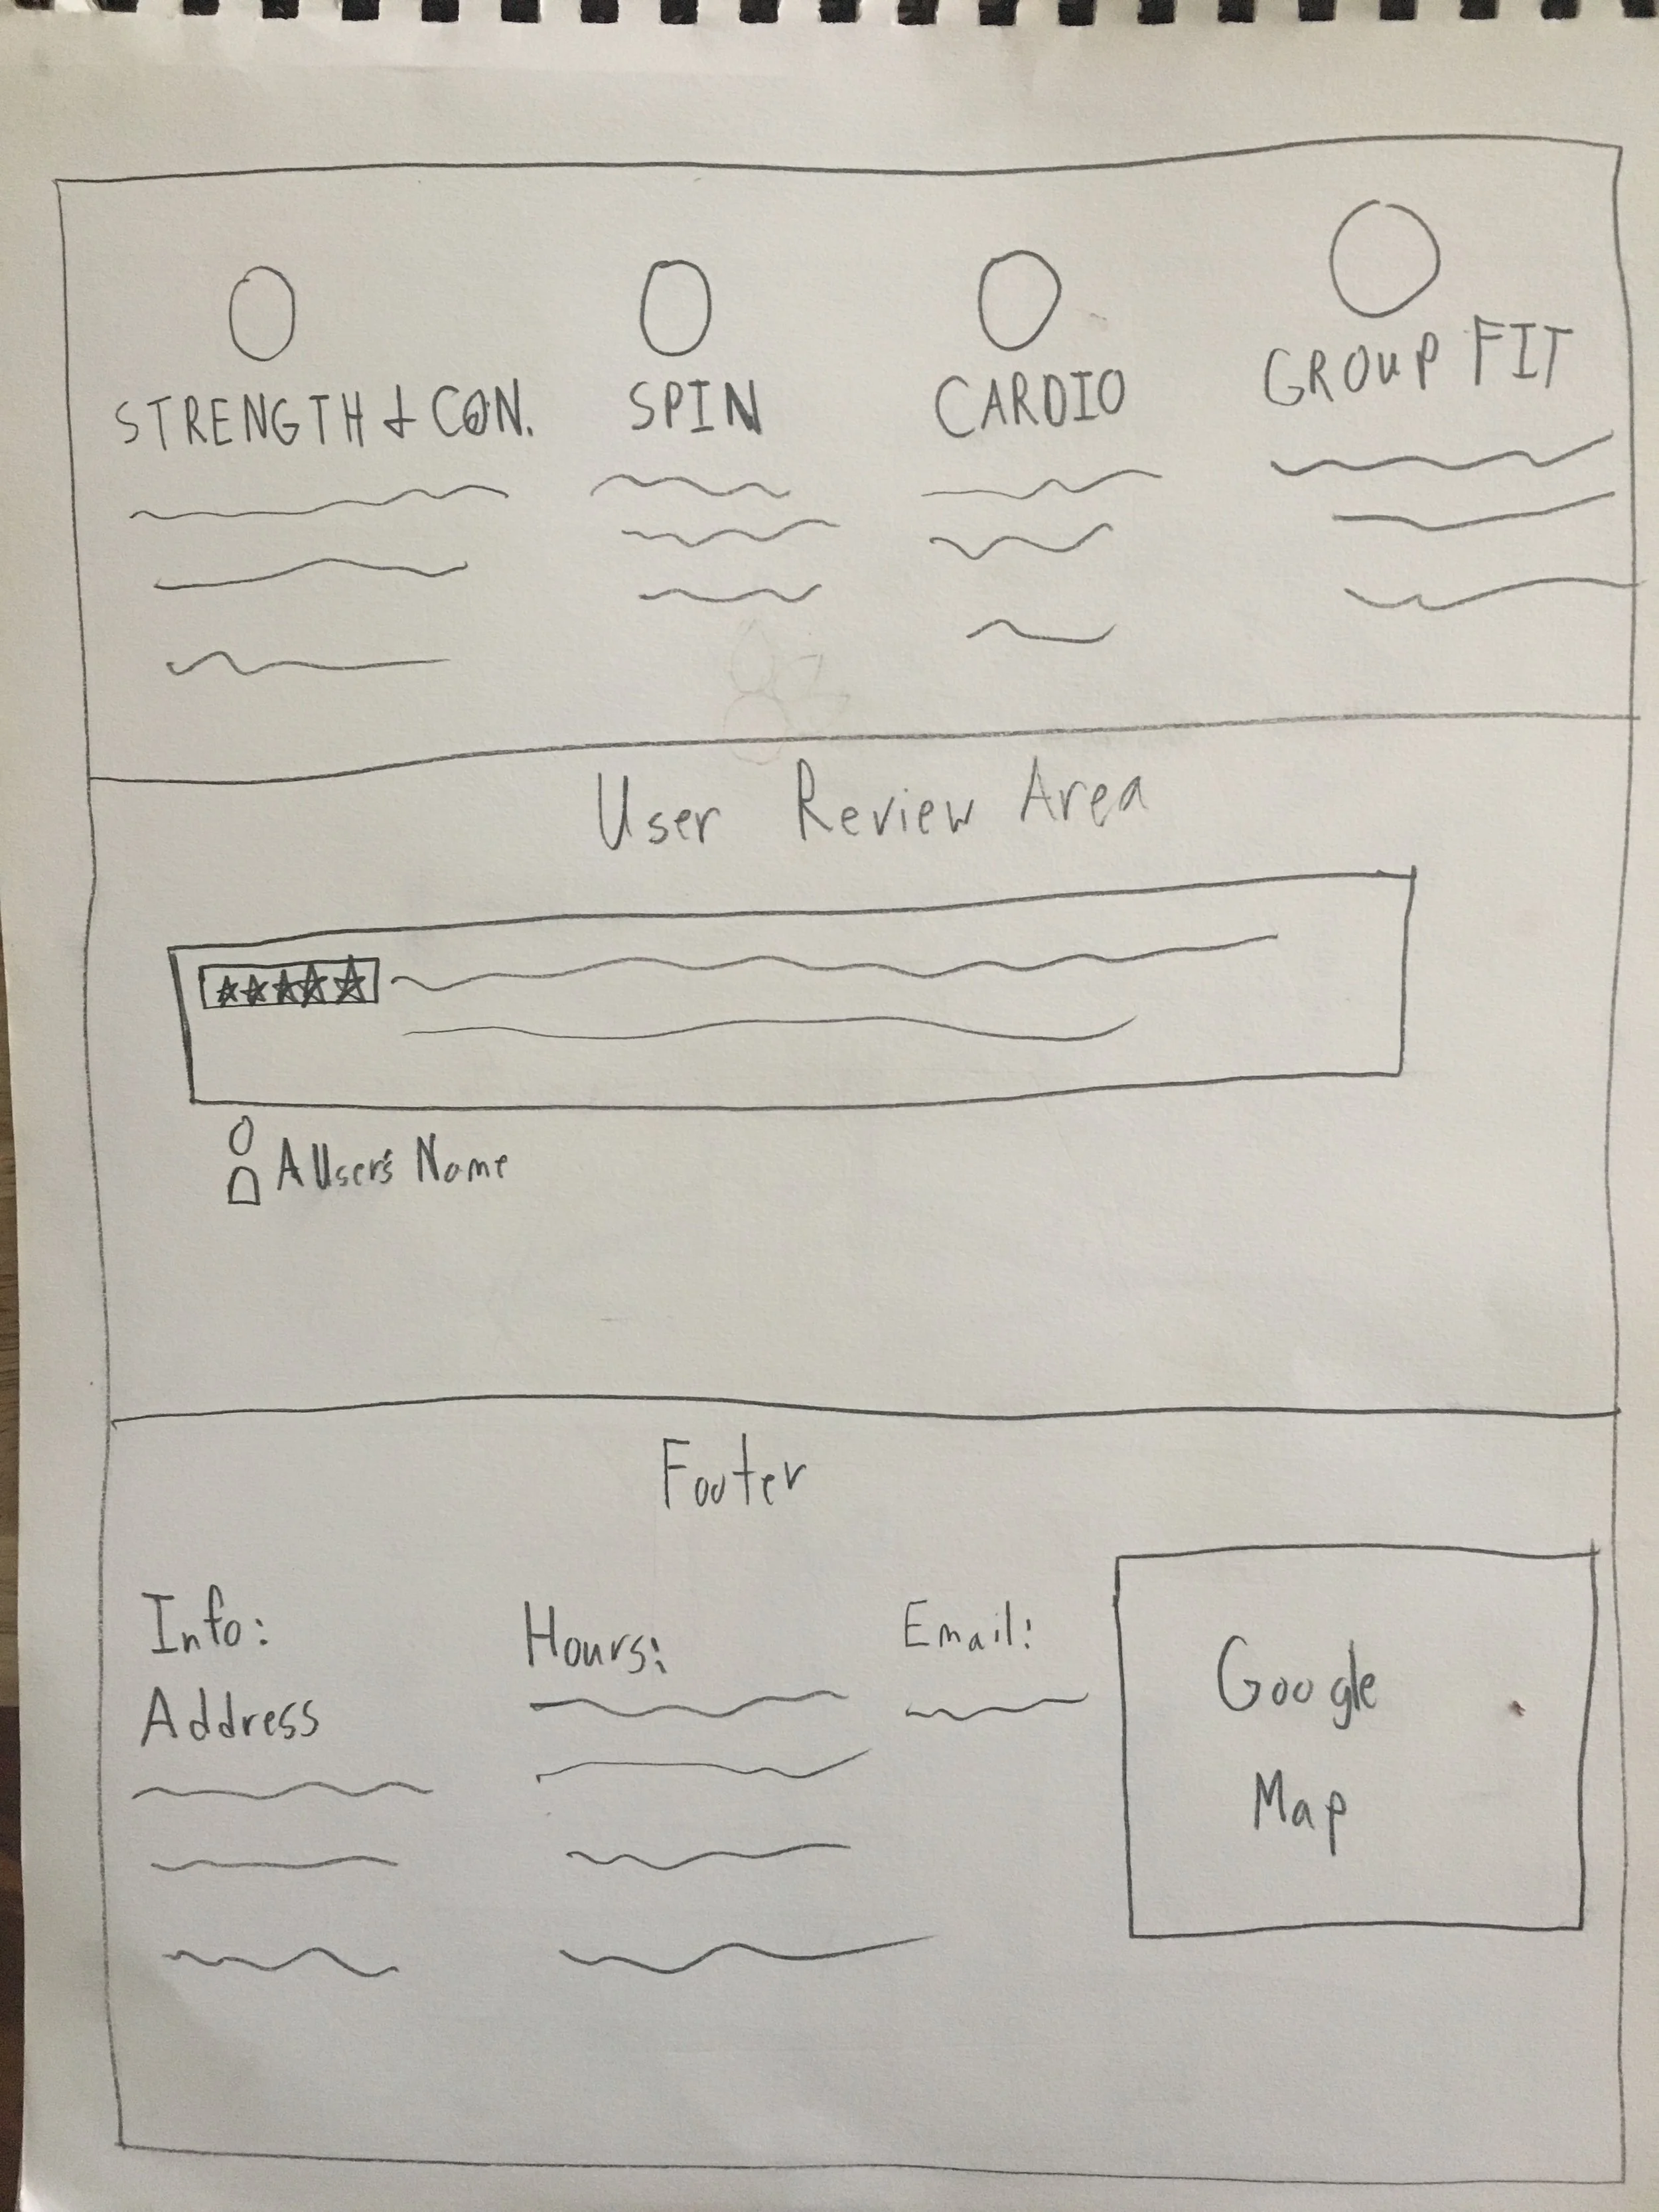 STRENGTH + CON.
SPIN
CARDIO
GROUP FIT
User Review Area
A User's Name
Footer
Info:
Address
Hours:
Email:
Google
Map